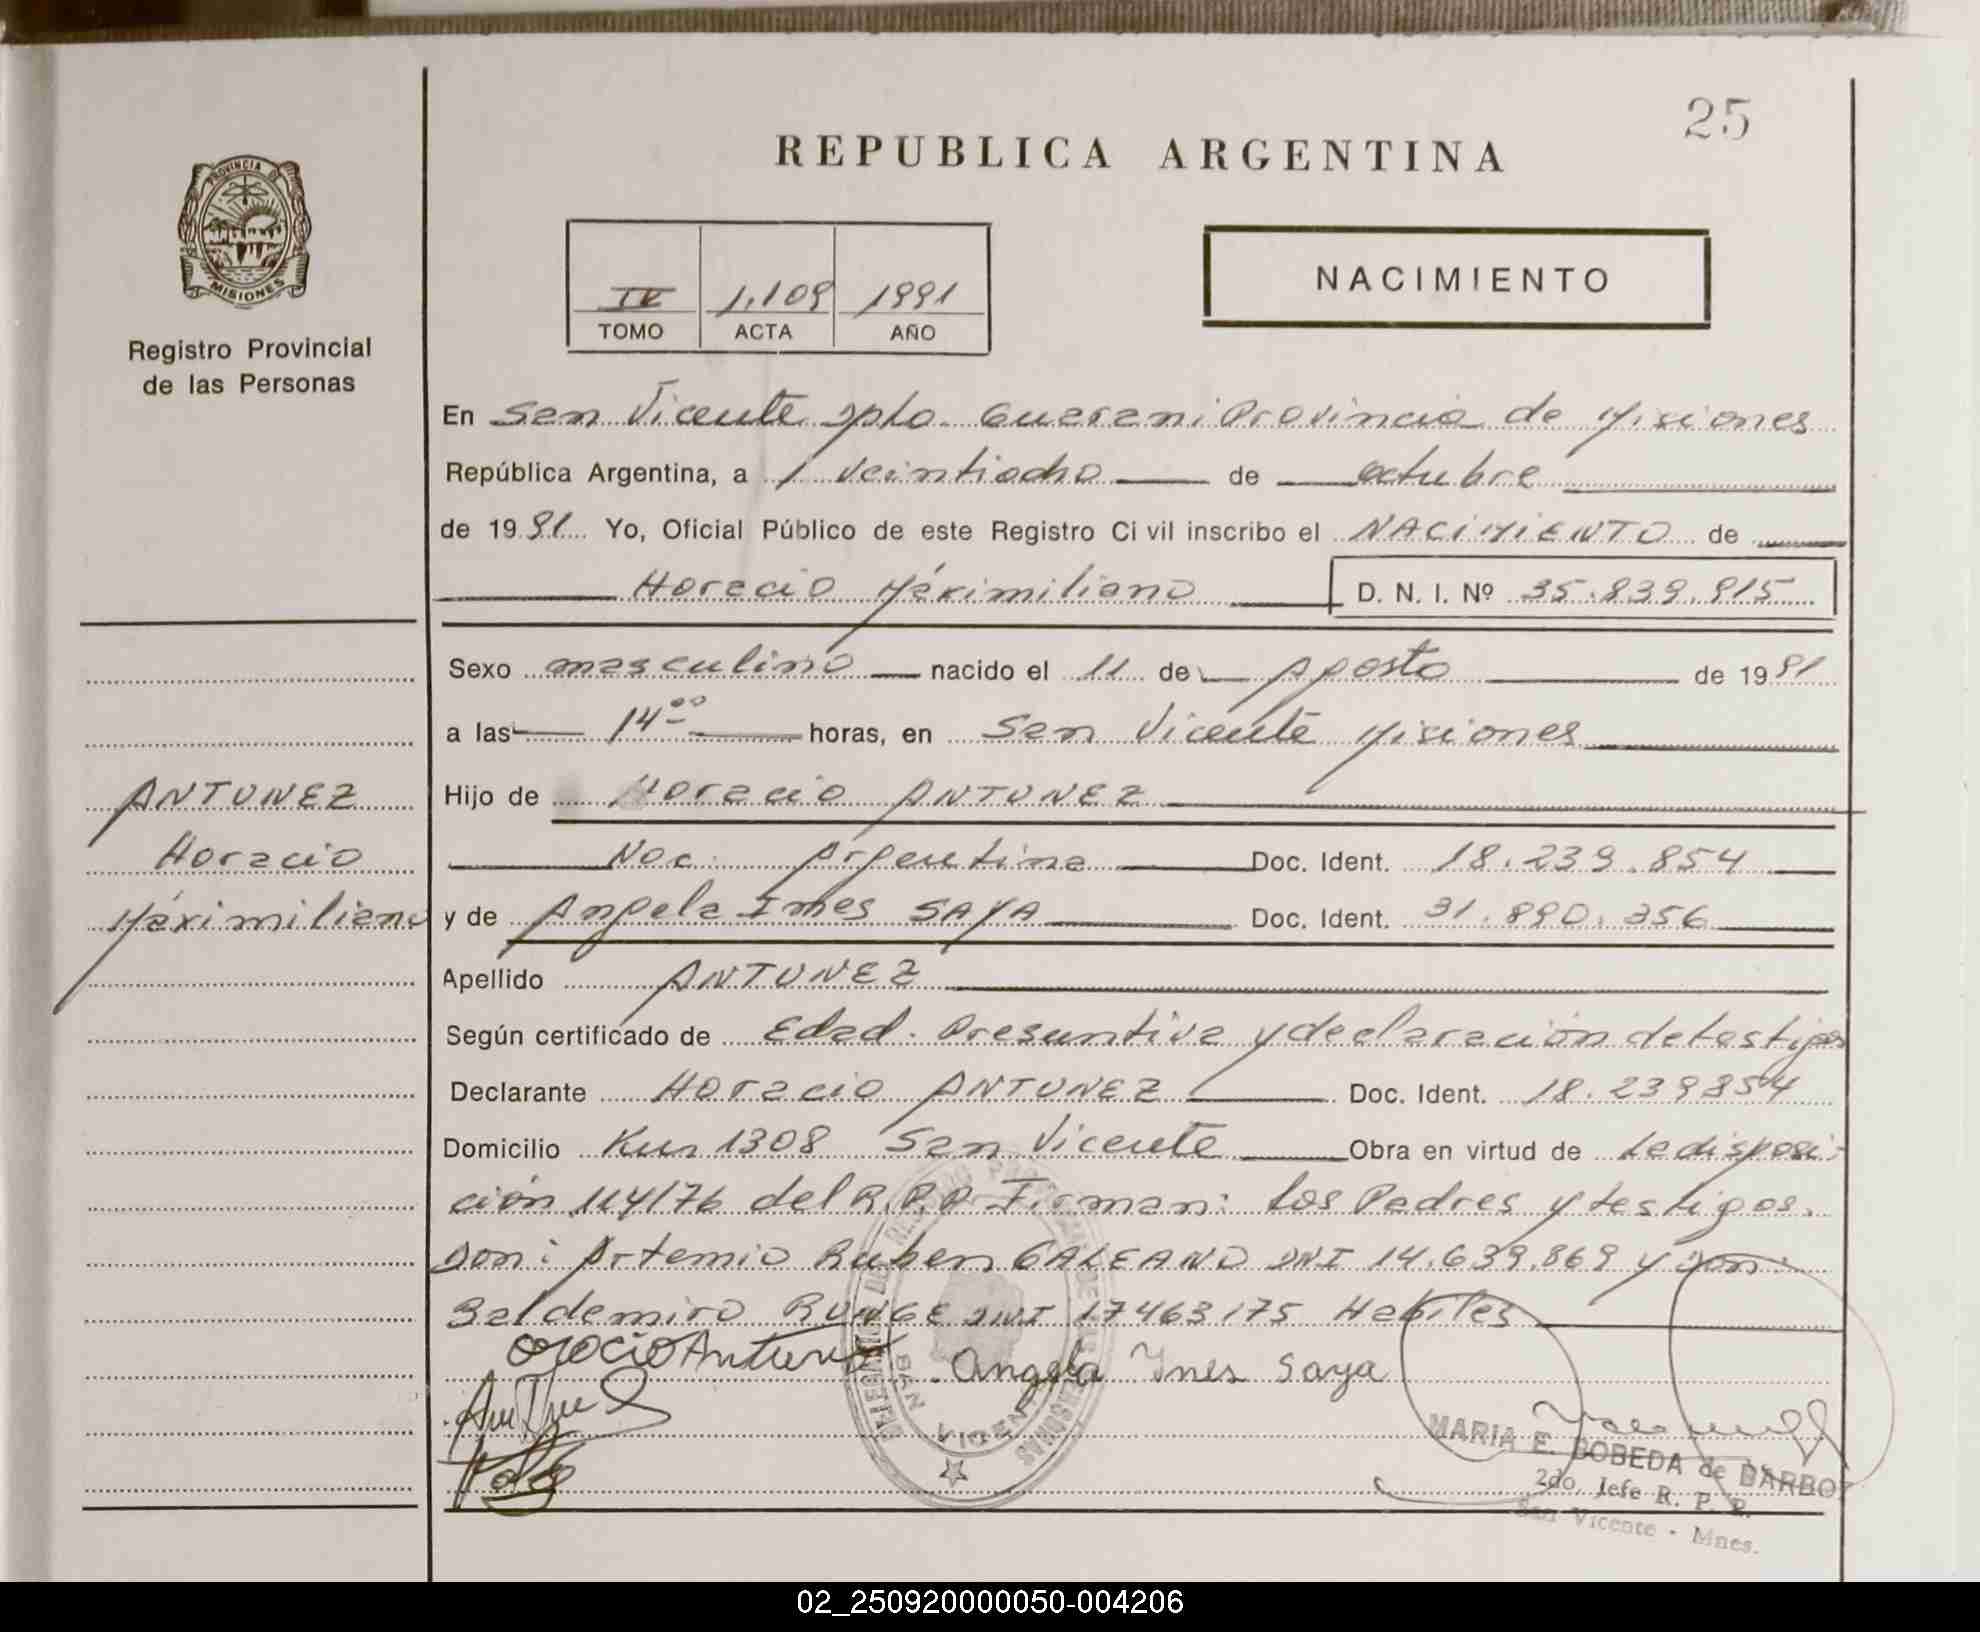 25
REPUBLICA ARGENTINA
PROVINCIA DE
MISIONES
Registro Provincial
de las Personas
IV 1.109 1991
TOMO ACTA AÑO
NACIMIENTO
En San Vicente Dpto. Guarani Provincia de Misiones
República Argentina, a veintiocho de octubre
de 1991 Yo, Oficial Público de este Registro Civil inscribo el NACIMIENTO de
Horacio Máximiliano D. N. I. Nº 35.839.915
Sexo masculino nacido el 11 de Agosto de 1991
a las 14 00 horas, en San Vicente Misiones
ANTUNEZ
Horacio
Máximiliano
Hijo de Horacio ANTUNEZ
Nac. Argentina Doc. Ident. 18.239.854
y de Angela Ines SAYA Doc. Ident. 31.890.356
Apellido ANTUNEZ
Según certificado de Edad. Presuntiva y declaración de testigos
Declarante Horacio ANTUNEZ Doc. Ident. 18.239854
Domicilio Km 1308 San Vicente Obra en virtud de La disposi-
ción 114/76 del R.P.P. Firman: Los Padres y testigos.
Don: Artemio Ruben GALEANO DNI 14.639.869 y Don:
Baldemiro RUNGE DNI 17463175 Habiles
Orocio Antunez Angela Ynes Saya
MARIA E. BOBEDA de BARBOZ
2do. Jefe R. P. P.
San Vicente - Mnes.
02_250920000050-004206